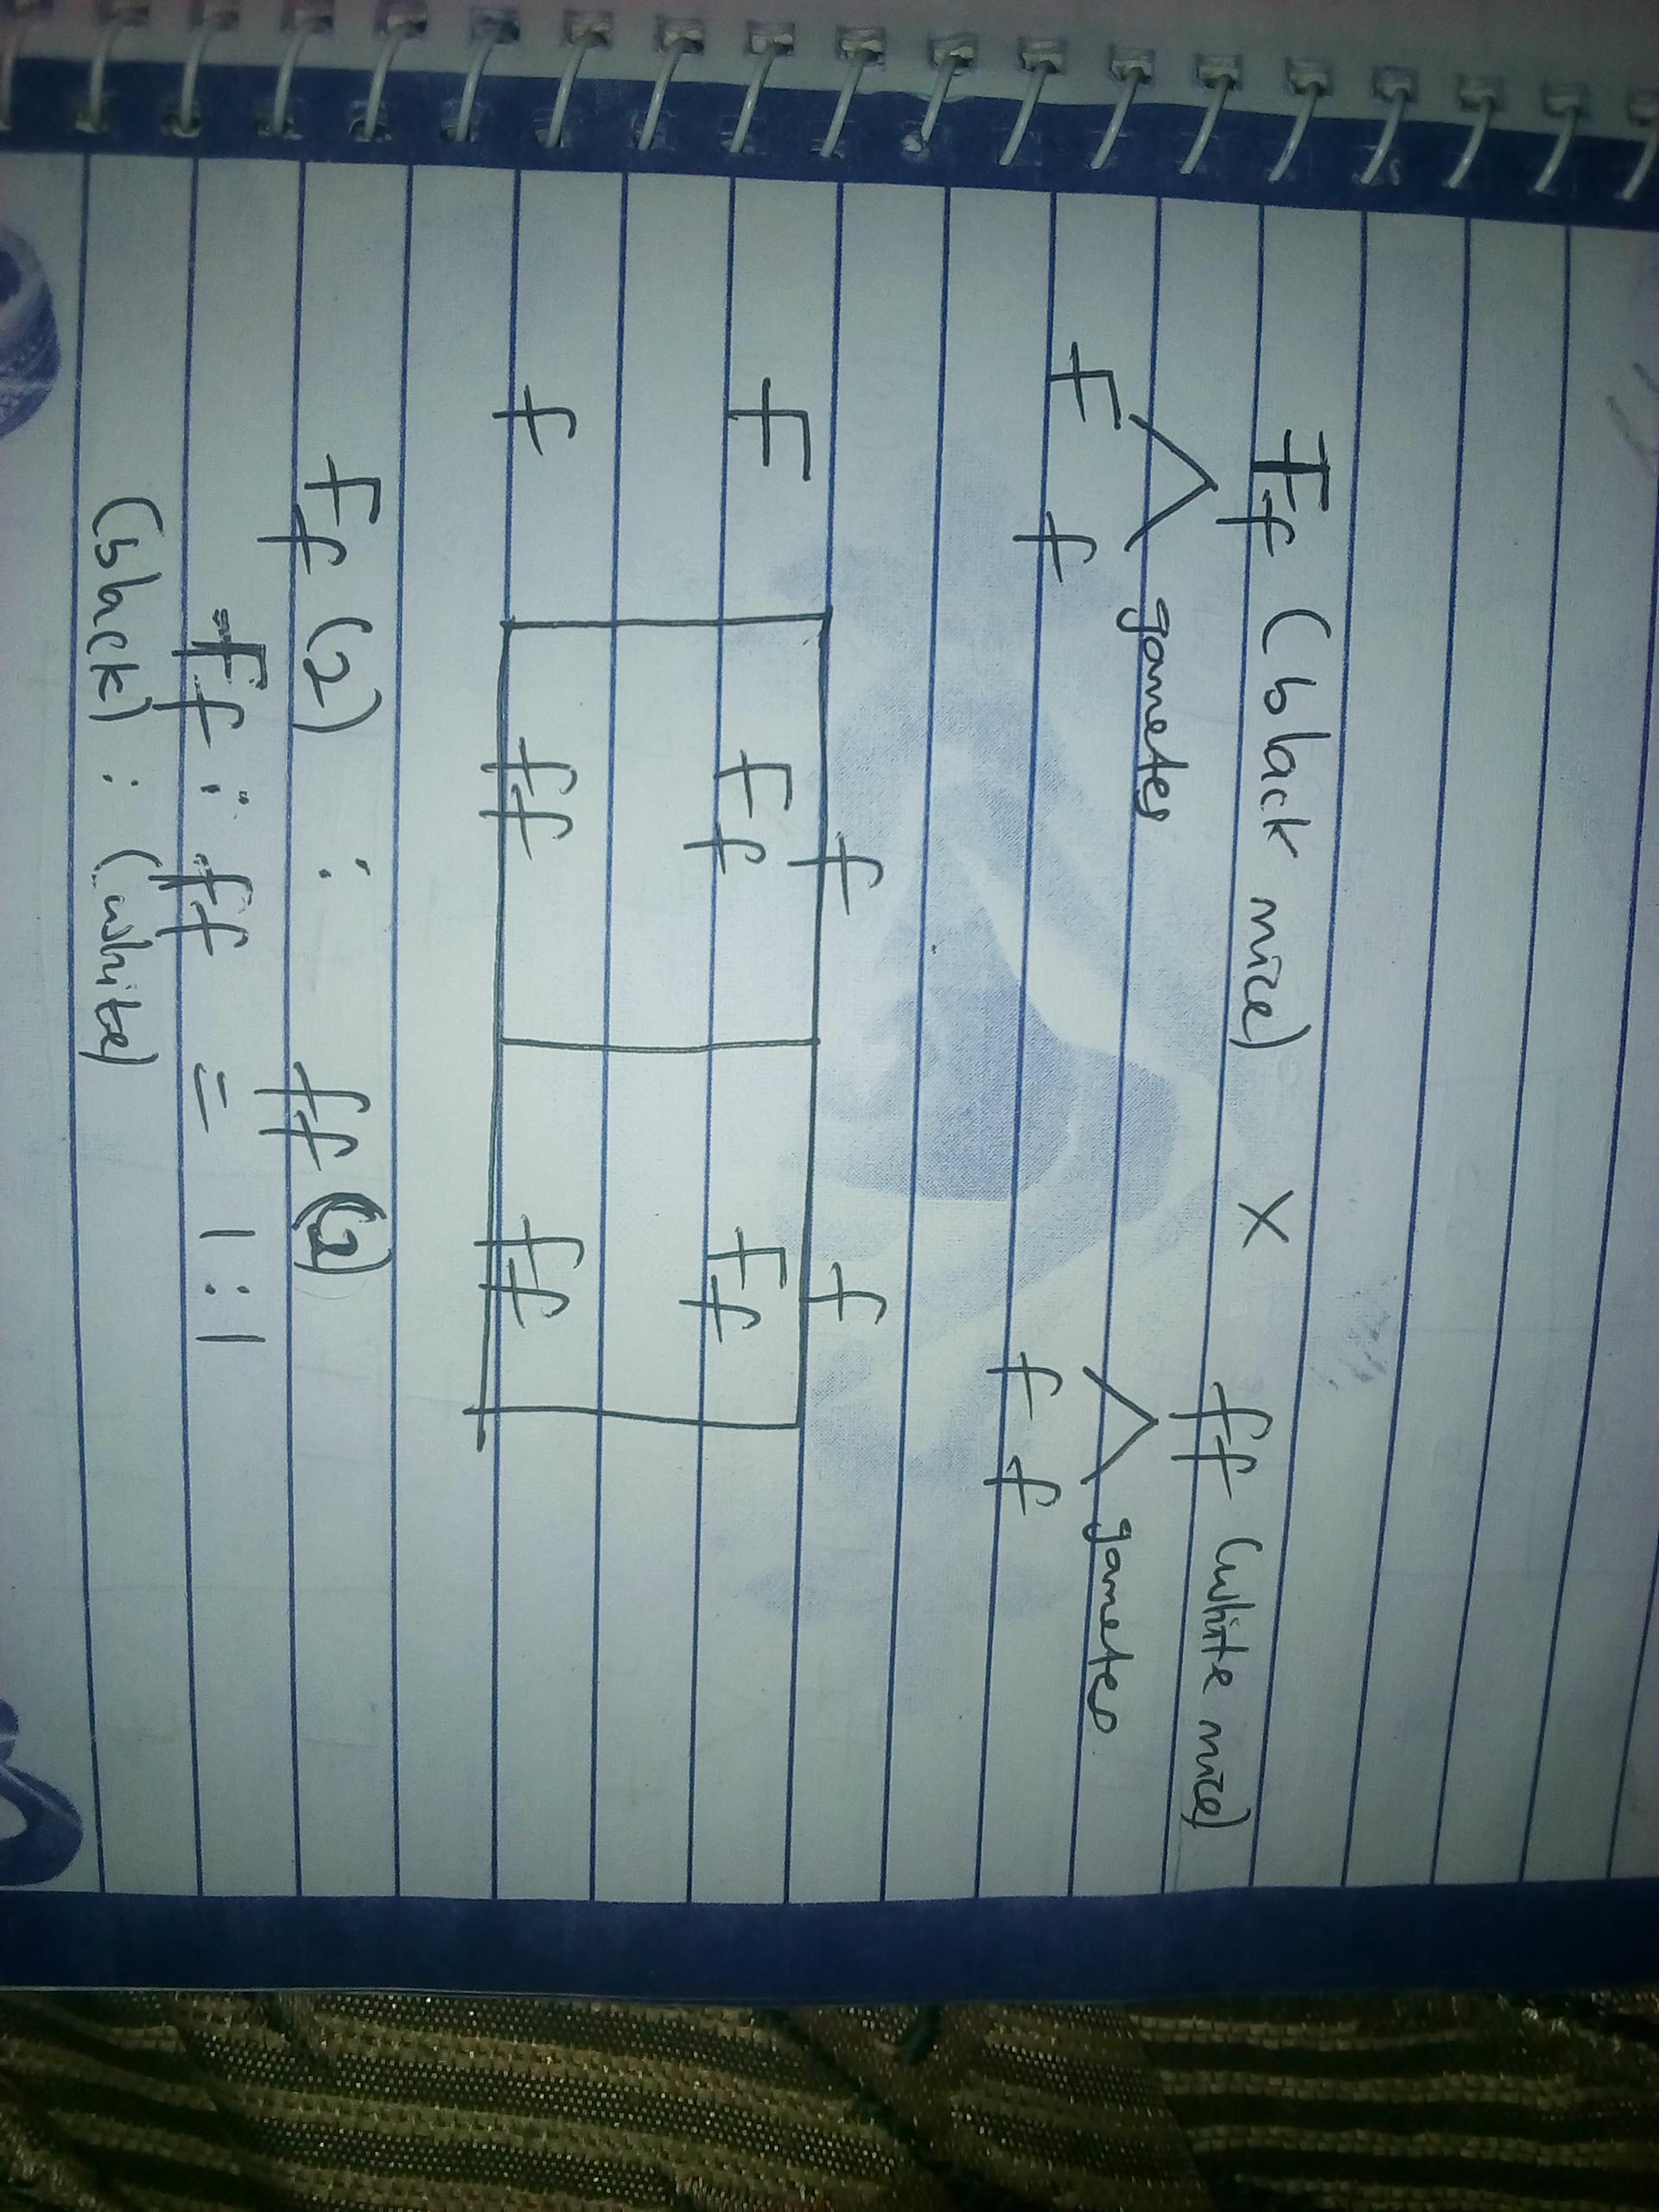 Ff (black mice) X ff (white mice)
gametes gametes
F f f f
f f
F Ff Ff
f ff ff
Ff (2) : ff (2)
Ff : ff = 1:1
(black) : (white)